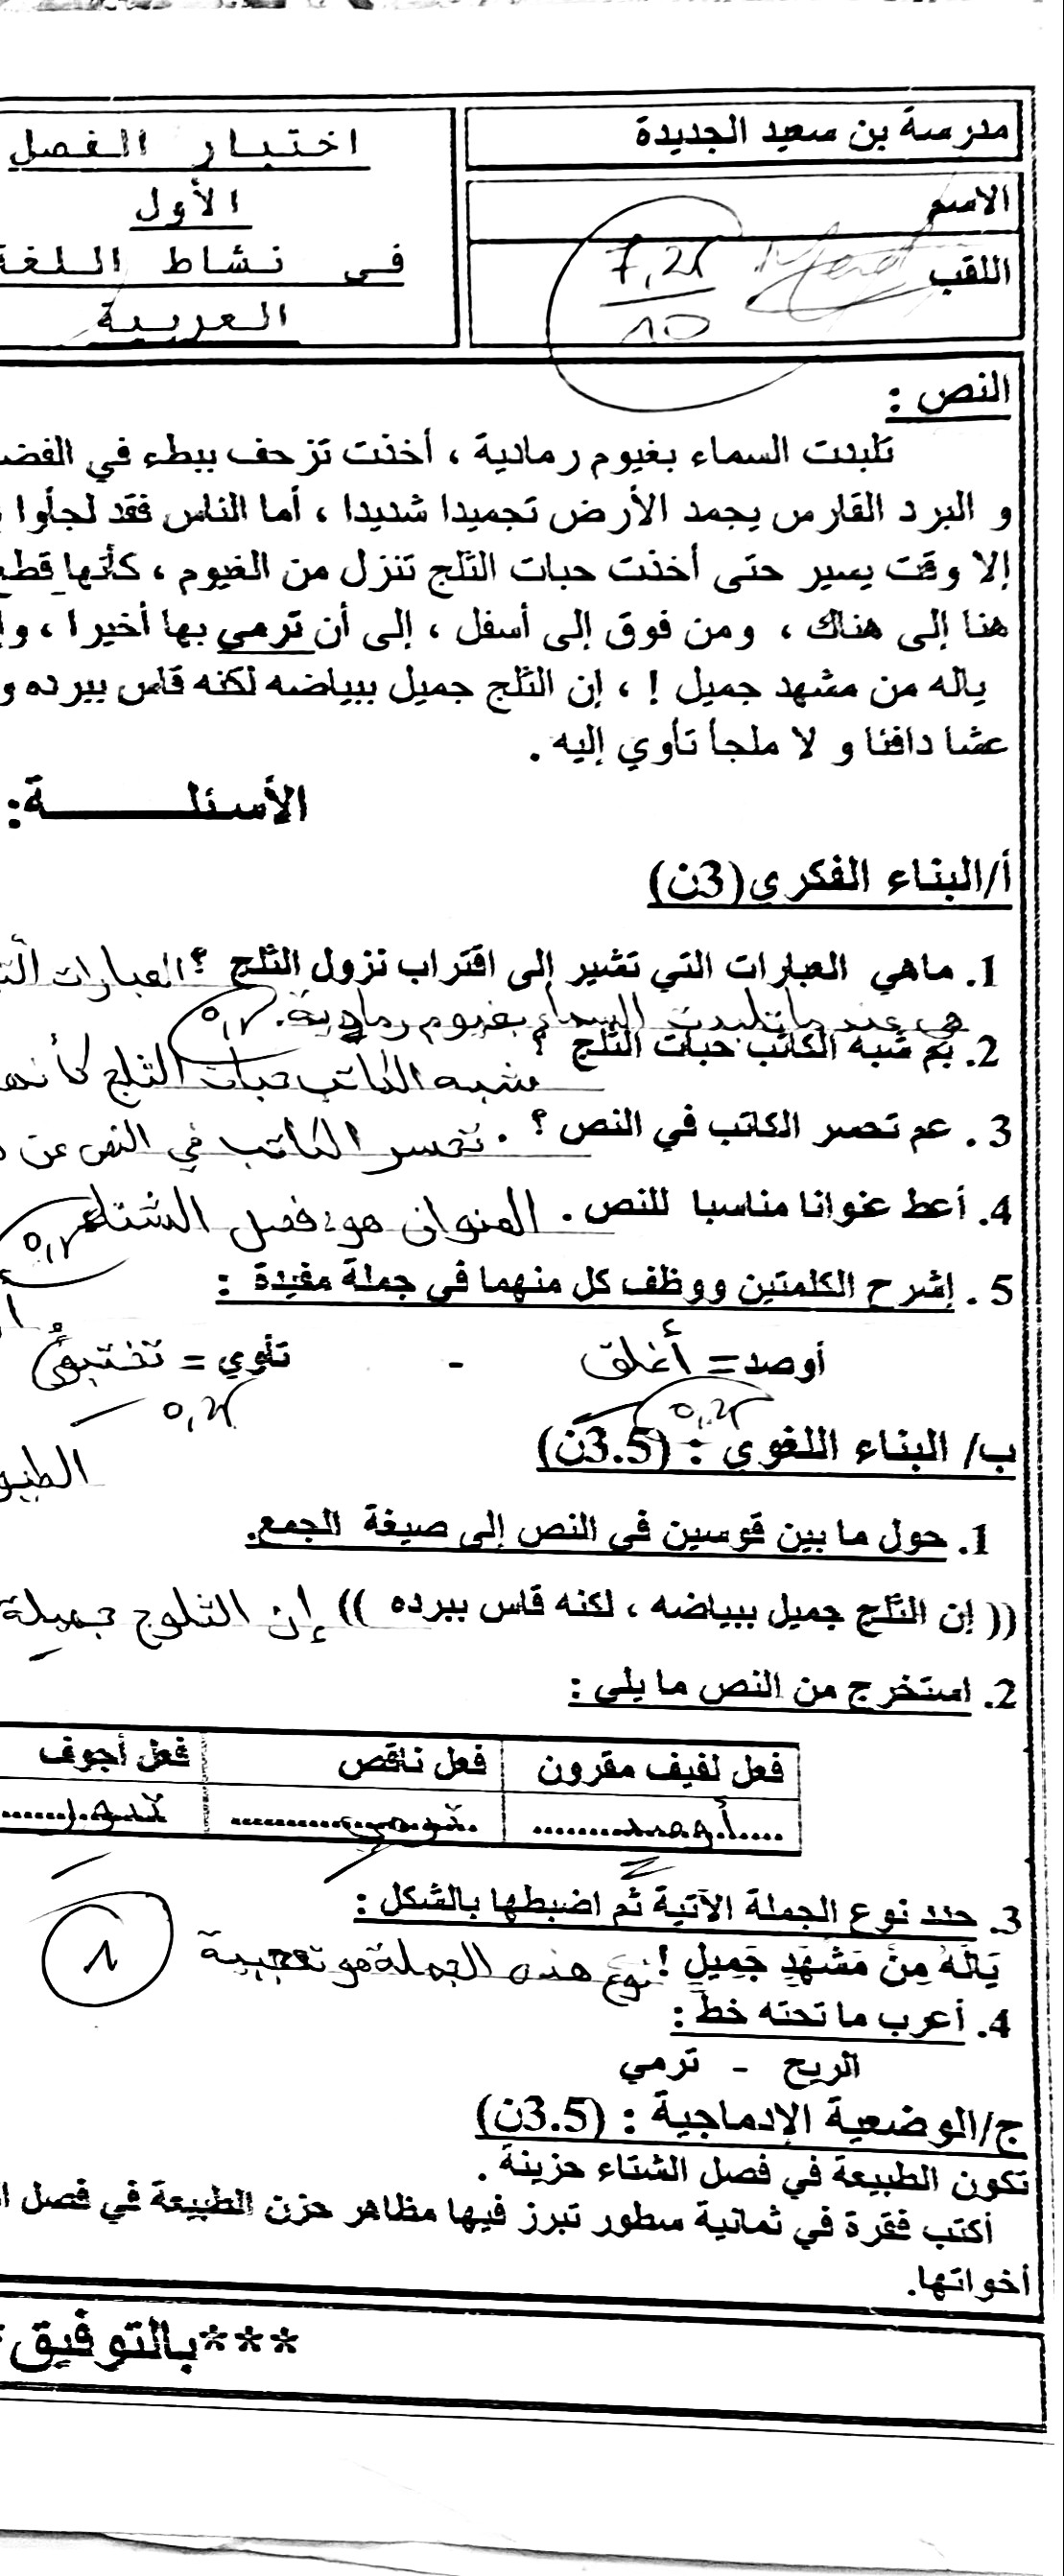 مدرسة بن سعيد الجديدة
الاسم
اللقب
7,25
10
اختبار الفصل
الأول
في نشاط اللغة
العربية
النص :
تلبدت السماء بغيوم رمادية ، أخذت تزحف ببطء في الفض
و البرد القارس يجمد الأرض تجميدا شديدا ، أما الناس فقد لجأوا
إلا وقت يسير حتى أخذت حبات الثلج تنزل من الغيوم ، كأنها قطع
هنا إلى هناك ، ومن فوق إلى أسفل ، إلى أن ترمي بها أخيرا ، و
ياله من مشهد جميل ! ، إن الثلج جميل ببياضه لكنه قاس ببرده و
عشا دافئا و لا ملجأ تأوي إليه .
الأسئلة:
أ/البناء الفكري(3ن)
1. ماهي العبارات التي تشير إلى اقتراب نزول الثلج ؟ العبارات التي
هي عند ما تلبدت السماء بغيوم رمادية. 0,5
2. بم شبه الكاتب حبات الثلج ؟
شبه الكاتب حبات الثلج كأنها
3 . عم تحسر الكاتب في النص ؟ . تحسر الكاتب في النص عن
4. أعط عنوانا مناسبا للنص . العنوان هو: فصل الشتاء
0,5
5 . إشرح الكلمتين ووظف كل منهما في جملة مفيدة :
أوصد = أغلق - تأوي = تختبئ
0,25 0,25
ب/ البناء اللغوي : (3.5ن)
الطيو
1. حول ما بين قوسين في النص إلى صيغة الجمع.
(( إن الثلج جميل ببياضه ، لكنه قاس ببرده )) إن الثلوج جميلة
2. استخرج من النص ما يلي :
فعل لفيف مقرون فعل ناقص فعل أجوف
أوصد ترمي
3. حدد نوع الجملة الآتية ثم اضبطها بالشكل :
يَالَهُ مِنْ مَشْهَدٍ جَمِيلٍ ! نوع هذه الجملة هو تعجبية
1
4. أعرب ما تحته خط :
الريح - ترمي
ج/الوضعية الإدماجية : (3.5ن)
تكون الطبيعة في فصل الشتاء حزينة .
أكتب فقرة في ثمانية سطور تبرز فيها مظاهر حزن الطبيعة في فصل ا
أخواتها.
***بالتوفيق*